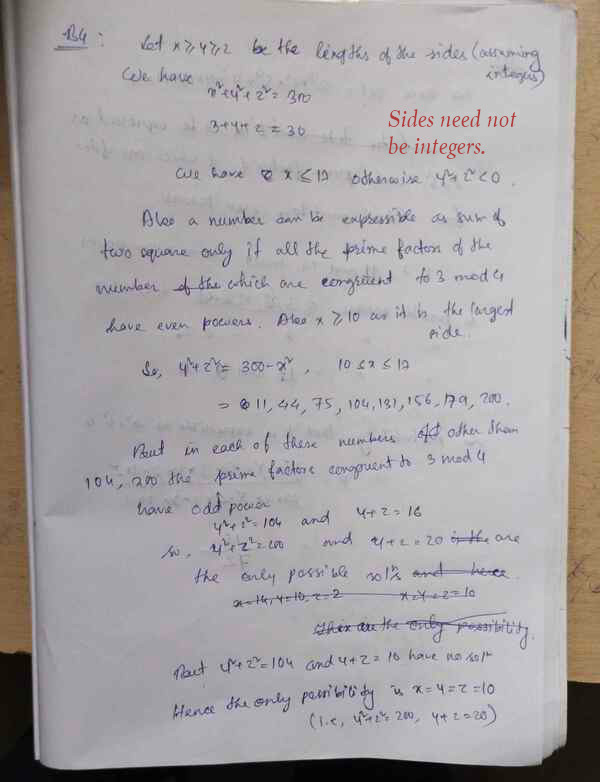 B4 :
Let x ⩾ y ⩾ z be the lengths of the sides (assuming integers)
We have
x²+y²+z² = 300
x+y+z = 30
Sides need not
be integers.
We have x ≤ 17 otherwise y²+z² < 0.
Also a number can be expressible as sum of
two square only if all the prime factors of the
number of the which are congruent to 3 mod 4
have even powers. Also x ⩾ 10 as it is the largest
side.
So, y²+z² = 300-x², 10 ≤ x ≤ 17
= 11, 44, 75, 104, 131, 156, 179, 200.
But in each of these numbers other than
104, 200 the prime factors congruent to 3 mod 4
have odd power
y²+z²=104 and y+z=16
so, y²+z²=200 and y+z=20 is the are
the only possible solⁿs and hence.
x=14, y=10, z=2 x=y=z=10
this are the only possibility.
But y²+z²=104 and y+z=16 have no solⁿ
Hence the only possibility is x=y=z=10
(i.e, y²+z²=200, y+z=20)